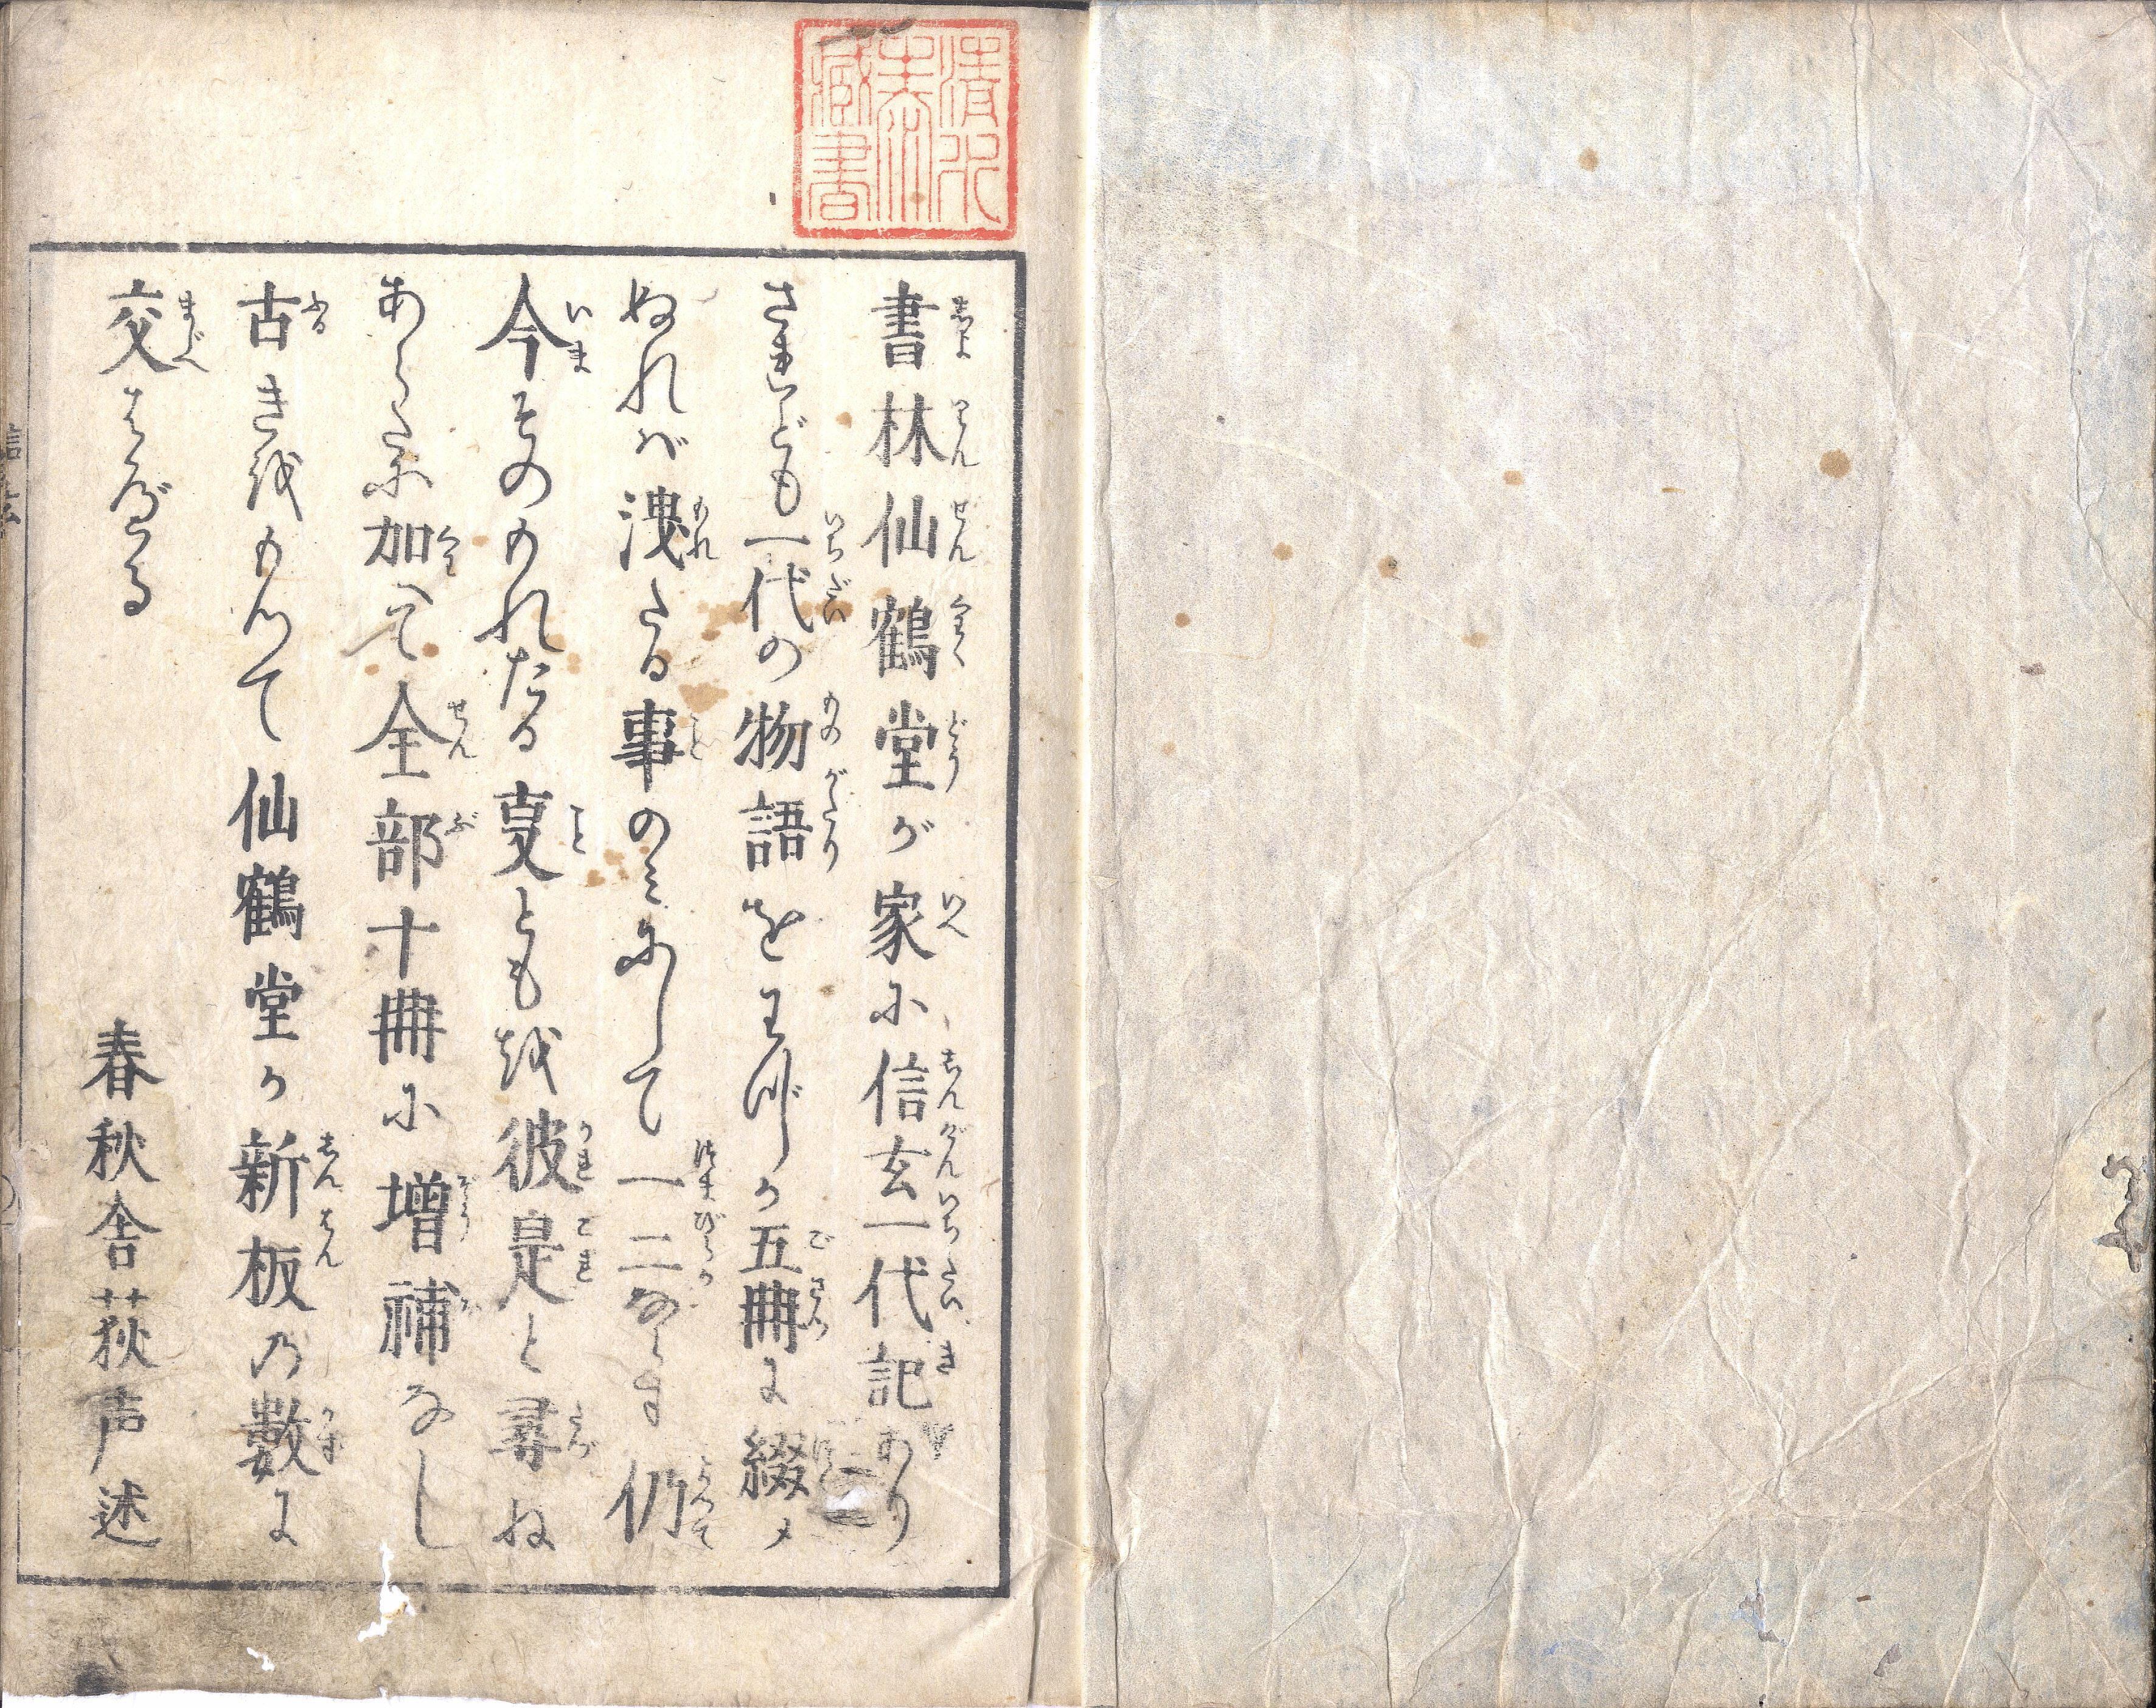 清水
泰
蔵書
書林仙鶴堂が家に信玄一代記あり
されども一代の物語をわづか五冊に綴メ
ぬれバ洩たる事のミにして一二ならず仍
今そのもれたる事ともを彼是と尋ね
あらたに加へて全部十冊に増補なし
古きをもつて仙鶴堂か新板の數に
交はべる
春秋舎荻声述